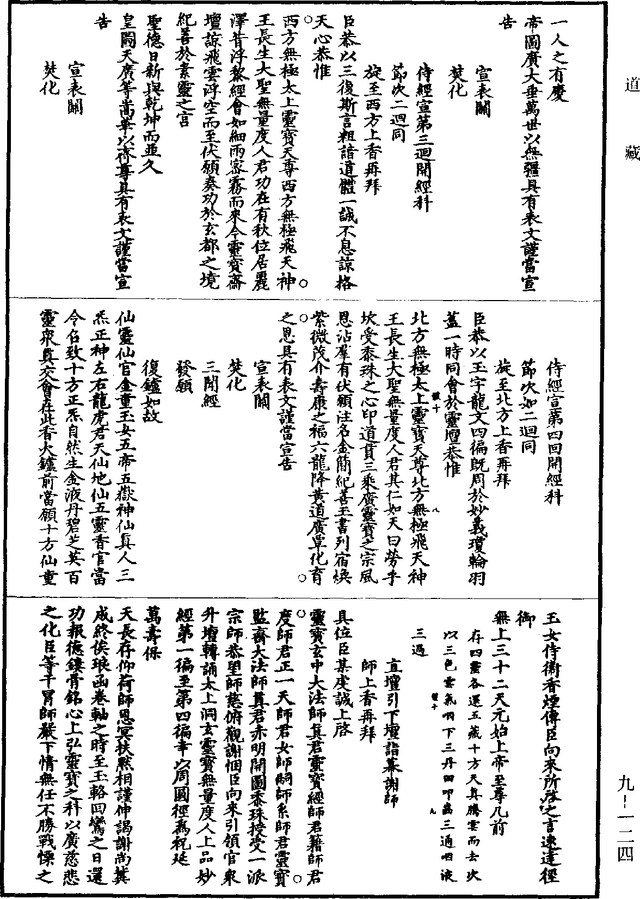 道藏
一人之有慶
帝圖廣大垂萬世以無疆具有表文謹當宣
告
宣表關
焚化
侍經宣第三迴開經科
節次二迴同
旋至西方上香再拜
臣恭以三復斯言粗諳道體一誠不息諒格
天心恭惟
西方無極太上靈寶天尊西方無極飛天神
王長生大聖無量度人君功在有秋位居麗
澤昔浮黎經會如細雨密霧而來今靈寶齋
壇諒飛雲浮空而至伏願奏功於玄都之境
紀善於素靈之宮
聖德日新與乾坤而並久
皇圖天廣等嵩華以齊尊具有表文謹當宣
告
宣表關
焚化
侍經宣第四回開經科
節次如二迴同
旋至北方上香再拜
臣恭以玉字龍文四徧既周於妙義瓊輪羽
蓋一時同會於靈壇恭惟
北方無極太上靈寶天尊北方無極飛天神
王長生大聖無量度人君其仁如天曰勞乎
坎受黍珠之心印道貫三乘廣靈寶之宗風
恩沾羣有伏願注名金簡紀善玉書列宿煥
紫微茂介壽康之福六龍降黃道廣覃化育
之恩具有表文謹當宣告
宣表關
焚化
三開經
發願
復鑪如故
仙靈仙官金童玉女五帝五嶽神仙真人三
炁正神左右龍虎君天仙地仙五靈香官當
令召致十方正炁自然生金液丹碧芝英百
靈眾真交會在此香火鑪前當願十方仙童
玉女侍衛香煙傳臣向來所啓之言速達徑
御
無上三十二天元始上帝至尊几前
存四靈各還五藏十方天真騰雲而去次
以三色雲氣咽下三丹田叩齒三通咽液
三過
直壇引下壇詣幕謝師
師上香再拜
具位臣某虔誠上啓
靈寶玄中大法師真君靈寶經師君籍師君
度師君正一天師君女師嗣師系師君靈寶
監齋大法師真君赤明開圖黍珠授受一派
宗師恭望師慈俯觀謝悃臣向來引領官眾
升壇轉誦太上洞玄靈寶無量度人上品妙
經第一徧至第四徧幸以周圓徑為祝延
萬壽保
天長存仰荷師恩冥扶默相謹伸謁謝尚冀
成終俟琅函卷軸之時至玉輅回鸞之日還
功報德鏤骨銘心上弘靈寶之科以廣慈悲
之化臣等干冒師嚴下情無任不勝戰慄之
九-一二四